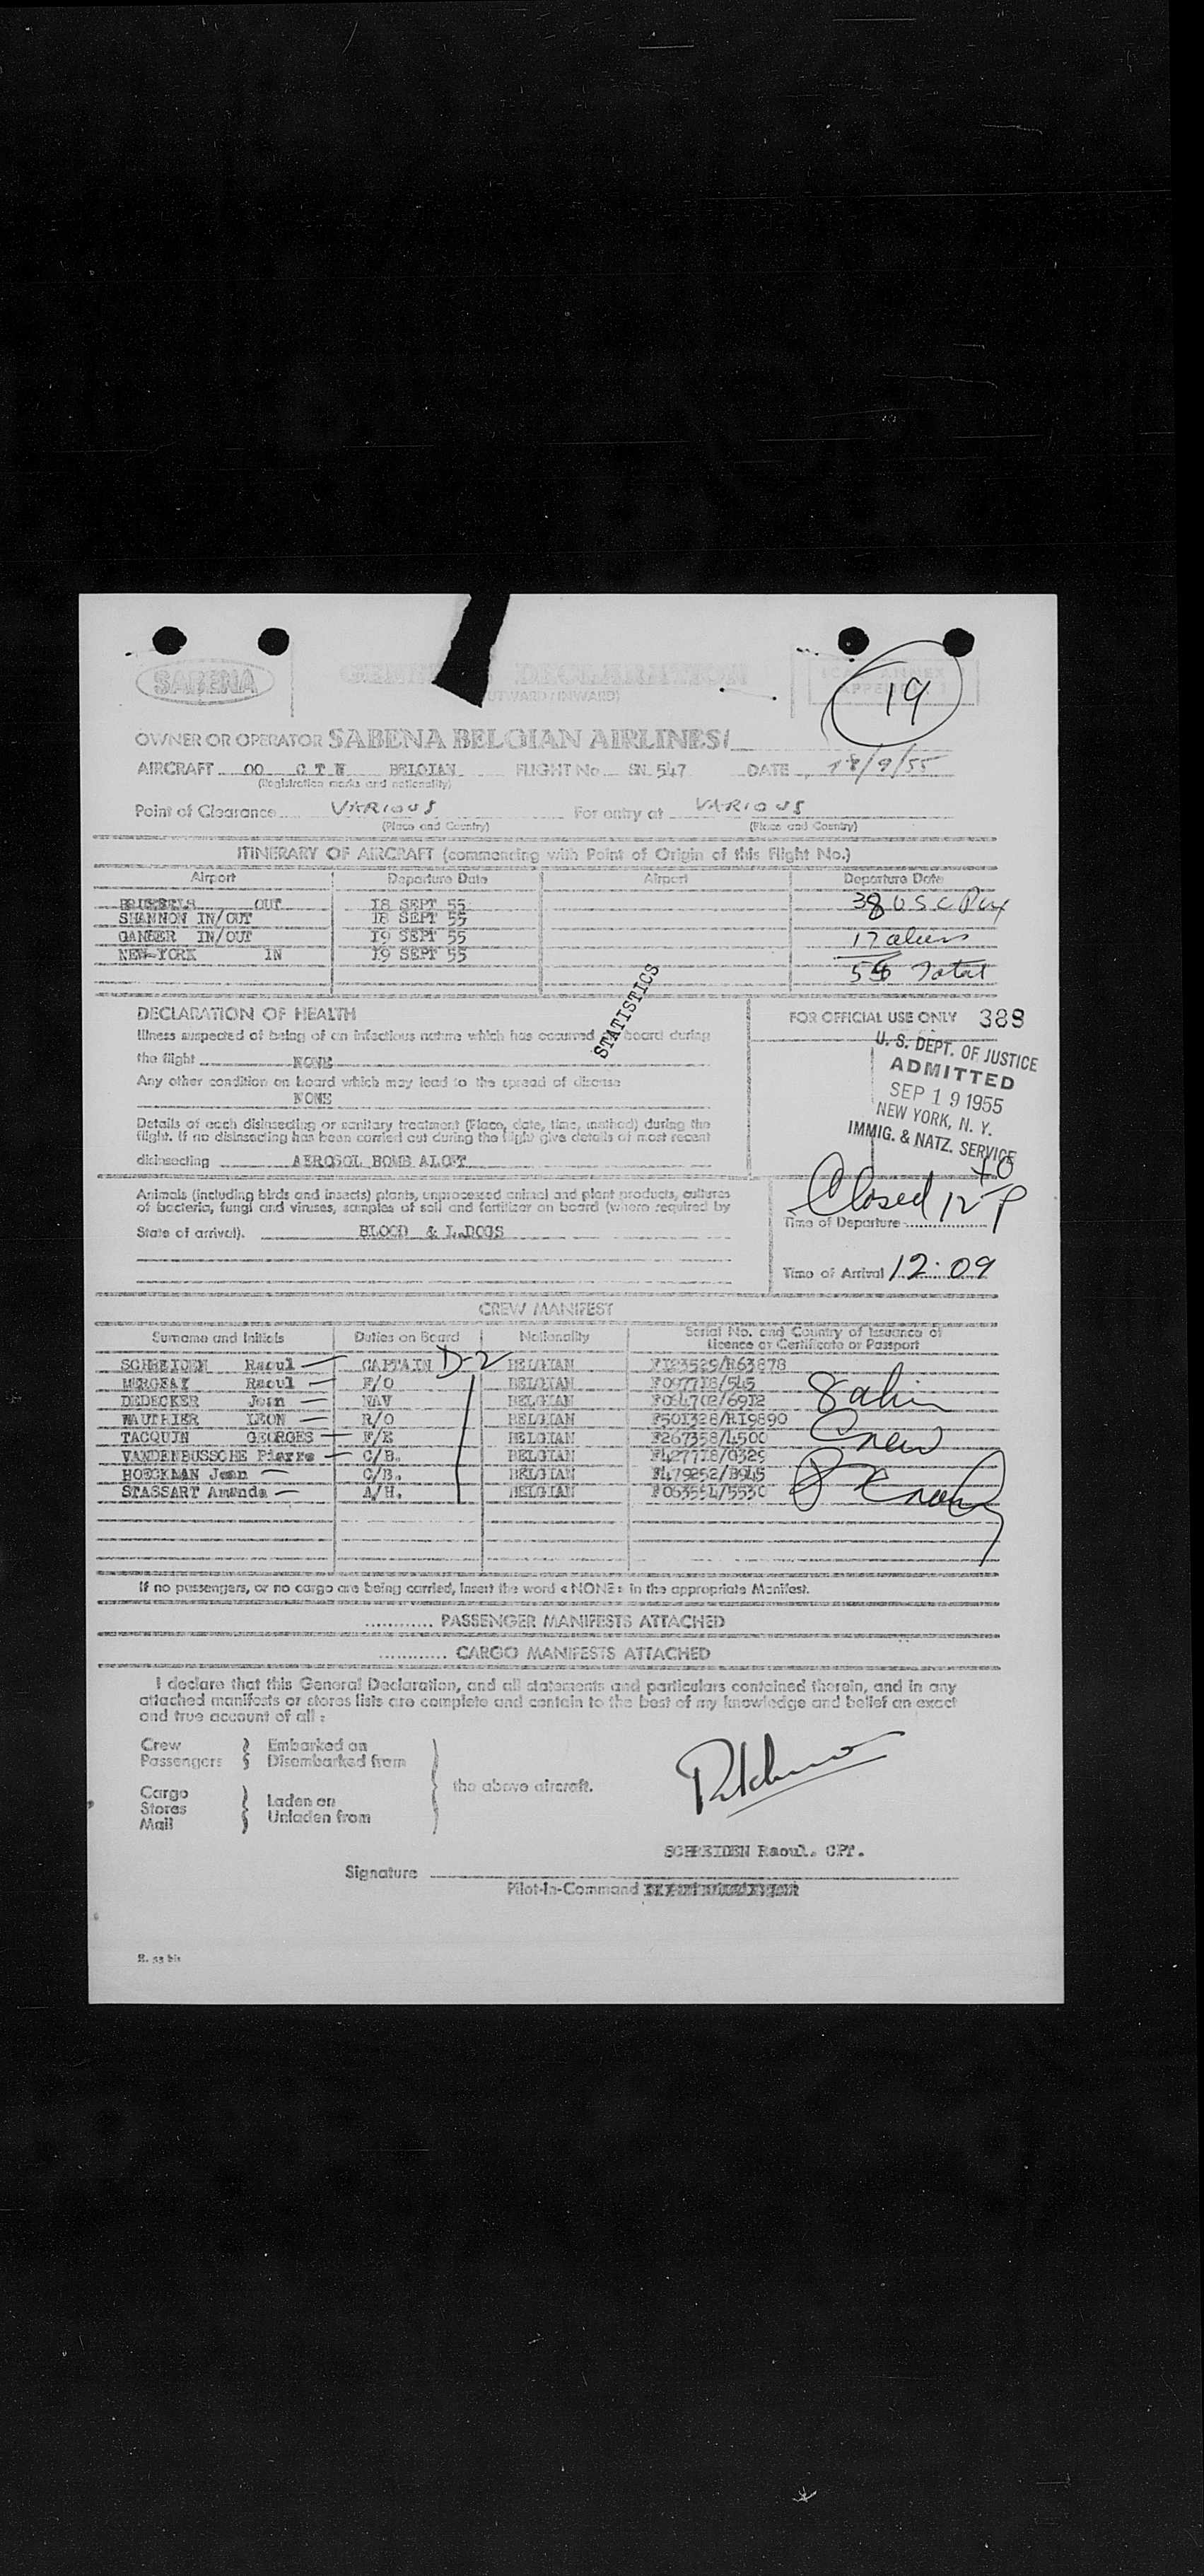 SABENA
GENERAL DECLARATION
(OUTWARD/INWARD)
19
OWNER OR OPERATOR SABENA BELGIAN AIRLINES/
AIRCRAFT OO BELGIAN FLIGHT No SN 547 DATE 18/9/55
(Registration marks and nationality)
Point of Clearance VARIOUS For entry at VARIOUS
(Place and Country) (Place and Country)
ITINERARY OF AIRCRAFT (commencing with Point of Origin of this Flight No.)
Airport Departure Date Airport Departure Date
BRUSSELS OUT 18 SEPT 55 38 USC Pax
SHANNON IN/OUT 18 SEPT 55
GANDER IN/OUT 19 SEPT 55 17 aliens
NEW-YORK IN 19 SEPT 55 Total
STATISTICS
DECLARATION OF HEALTH
Illness suspected of being of an infectious nature which has occurred on board during
the flight NONE
Any other condition on board which may lead to the spread of disease
NONE
Details of each disinsecting or sanitary treatment (Place, date, time, method) during the
flight. If no disinsecting has been carried out during the flight give details of most recent
disinsecting AEROSOL BOMB ALOFT
FOR OFFICIAL USE ONLY 388
U. S. DEPT. OF JUSTICE
ADMITTED
SEP 19 1955
NEW YORK, N. Y.
IMMIG. & NATZ. SERVICE
Animals (including birds and insects) plants, unprocessed animal and plant products, cultures
of bacteria, fungi and viruses, samples of soil and fertilizer on board (where required by
State of arrival). BLOOD & L.DOGS
Closed
Time of Departure
Time of Arrival 12:09
CREW MANIFEST
Surname and Initials Duties on Board Nationality Serial No. and Country of Issuance of
Licence or Certificate or Passport
SCHREIDEN Raoul CAPTAIN D-2 BELGIAN F123529/R63878
MERGEAY Raoul F/O BELGIAN F097718/545
DEDECKER Jean NAV BELGIAN F064702/6912
WAUTHIER LEON R/O BELGIAN F501328/RI9890
TACQUIN GEORGES F/E BELGIAN F267358/4500
VANDENBUSSCHE Pierre C/B. BELGIAN F427718/0329
HOECKMAN Jean C/B. BELGIAN F479252/B945
STASSART Amanda A/H. BELGIAN F063554/5530
8 alien
Crew
If no passengers, or no cargo are being carried, insert the word « NONE » in the appropriate Manifest.
............ PASSENGER MANIFESTS ATTACHED
............ CARGO MANIFESTS ATTACHED
I declare that this General Declaration, and all statements and particulars contained therein, and in any
attached manifests or stores lists are complete and contain to the best of my knowledge and belief an exact
and true account of all :
Crew
Passengers
Embarked on
Disembarked from
Cargo
Stores
Mail
Laden on
Unladen from
the above aircraft.
SCHREIDEN Raoul. CPT.
Signature
Pilot-in-Command
R. 55 bis